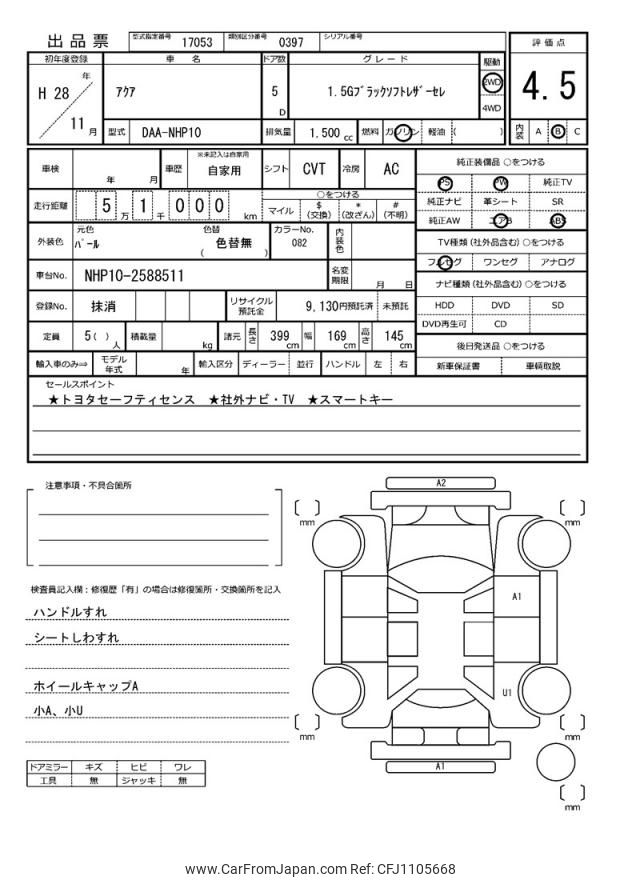 出品票 型式指定番号 17053 類別区分番号 0397 シリアル番号
初年度登録 車名 ドア数 グレード 駆動 評価点
H 28 年 11 月 アクア 5 D 1.5Gﾌﾞﾗックソフトﾚｻﾞｰセレ 2WD 4WD 4.5
型式 DAA-NHP10 排気量 1.500 cc 燃料 ガソリン 軽油 ( ) 内装 A B C
車検 年 月 車歴 ※未記入は自家用 自家用 シフト CVT 冷房 AC 純正装備品 ○をつける
PS PW 純正TV
走行距離 5 万 1 千 0 0 0 km ○をつける
マイル $ (交換) * (改ざん) # (不明)
純正ナビ 革シート SR
純正AW エアB ABS
外装色 元色 ﾊﾟｰﾙ 色替 色替無 ( ) カラーNo. 082 内装色
TV種類 (社外品含む) ○をつける
フルセグ ワンセグ アナログ
車台No. NHP10-2588511 名変期限 月 日
ナビ種類 (社外品含む) ○をつける
登録No. 抹消 リサイクル預託金 9,130円預託済 未預託
HDD DVD SD
DVD再生可 CD
定員 5( ) 人 積載量 kg 諸元 長さ 399 cm 幅 169 cm 高さ 145 cm
後日発送品 ○をつける
輸入車のみ⇒ モデル年式 年 輸入区分 ディーラー 並行 ハンドル 左 右 新車保証書 車輌取説
セールスポイント
★トヨタセーフティセンス ★社外ナビ・TV ★スマートキー
注意事項・不具合箇所
A2
mm
mm
検査員記入欄：修復歴「有」の場合は修復箇所・交換箇所を記入
A1
ハンドルすれ
シートしわすれ
ホイールキャップA
U1
小A、小U
mm
mm
ドアミラー キズ ヒビ ワレ
A1
工具 無 ジャッキ 無
mm
www.CarFromJapan.com Ref: CFJ1105668